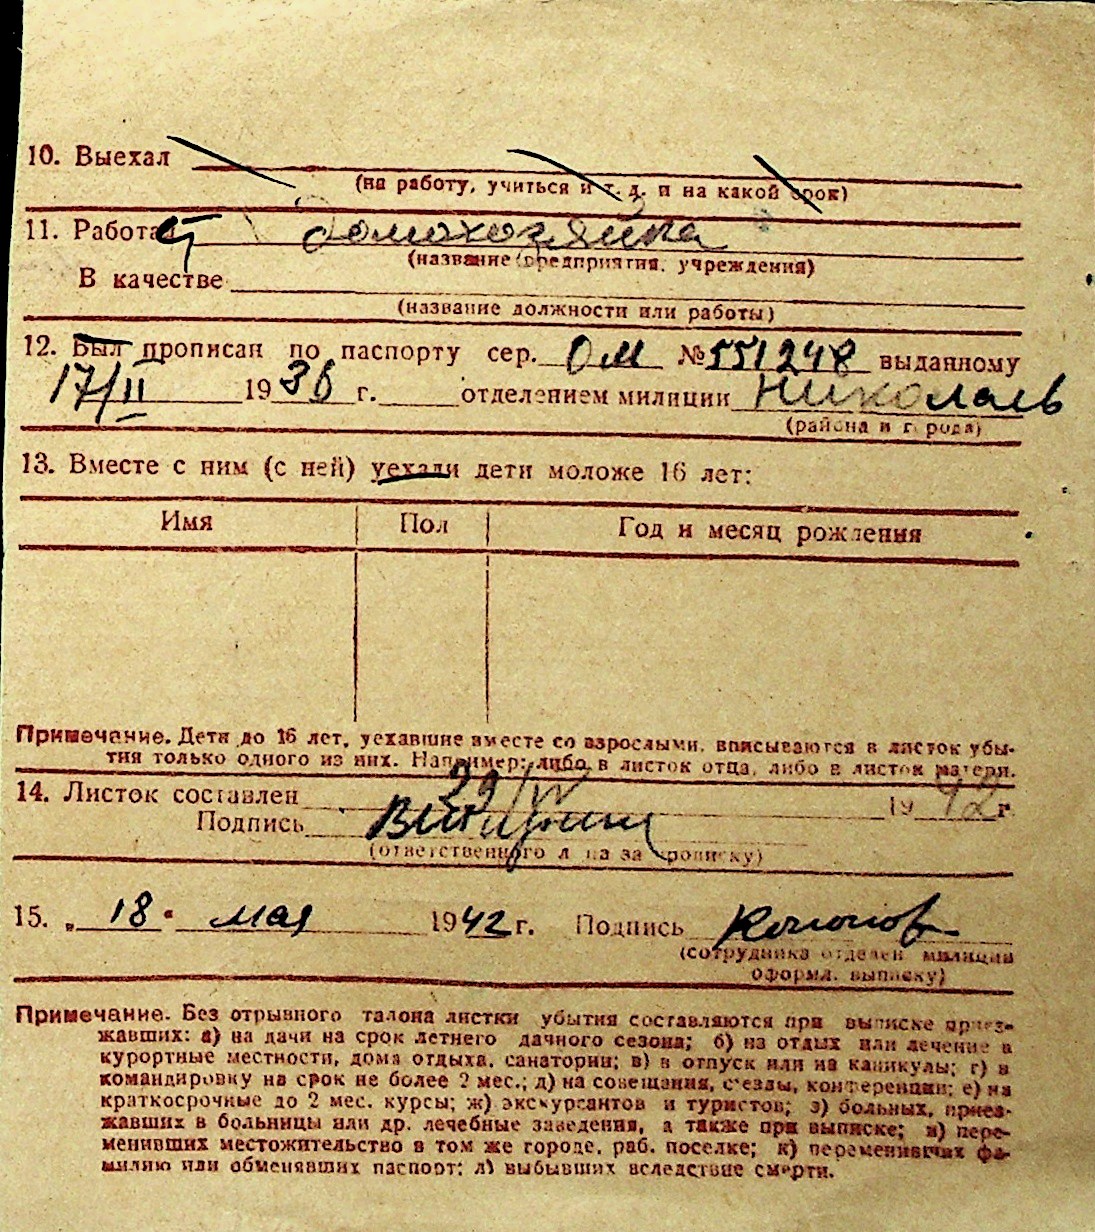 10. Выехал
(на работу, учиться и т. д. и на какой срок)
11. Работал домохозяйка
(название предприятия, учреждения)
В качестве
(название должности или работы)
12. Был прописан по паспорту сер. ОМ № 551248 выданному
17/II 1936 г. отделением милиции Николаев
(района и города)
13. Вместе с ним (с ней) уехали дети моложе 16 лет:
Имя Пол Год и месяц рождения
Примечание. Дети до 16 лет, уехавшие вместе со взрослыми, вписываются в листок убы-
тия только одного из них. Например: либо в листок отца, либо в листок матери.
14. Листок составлен 29/IV 1942 г.
Подпись
(ответственного лица за прописку)
15. „ 18 " мая 1942 г. Подпись Кононов
(сотрудника отделен. милиции
оформл. выписку)
Примечание. Без отрывного талона листки убытия составляются при выписке приез-
жавших: а) на дачи на срок летнего дачного сезона; б) на отдых или лечение в
курортные местности, дома отдыха, санатории; в) в отпуск или на каникулы; г) в
командировку на срок не более 2 мес.; д) на совещания, с'езды, конференции; е) на
краткосрочные до 2 мес. курсы; ж) экскурсантов и туристов; з) больных, приез-
жавших в больницы или др. лечебные заведения, а также при выписке; и) пере-
менивших местожительство в том же городе, раб. поселке; к) переменивших фа-
милию или обменявших паспорт; л) выбывших вследствие смерти.